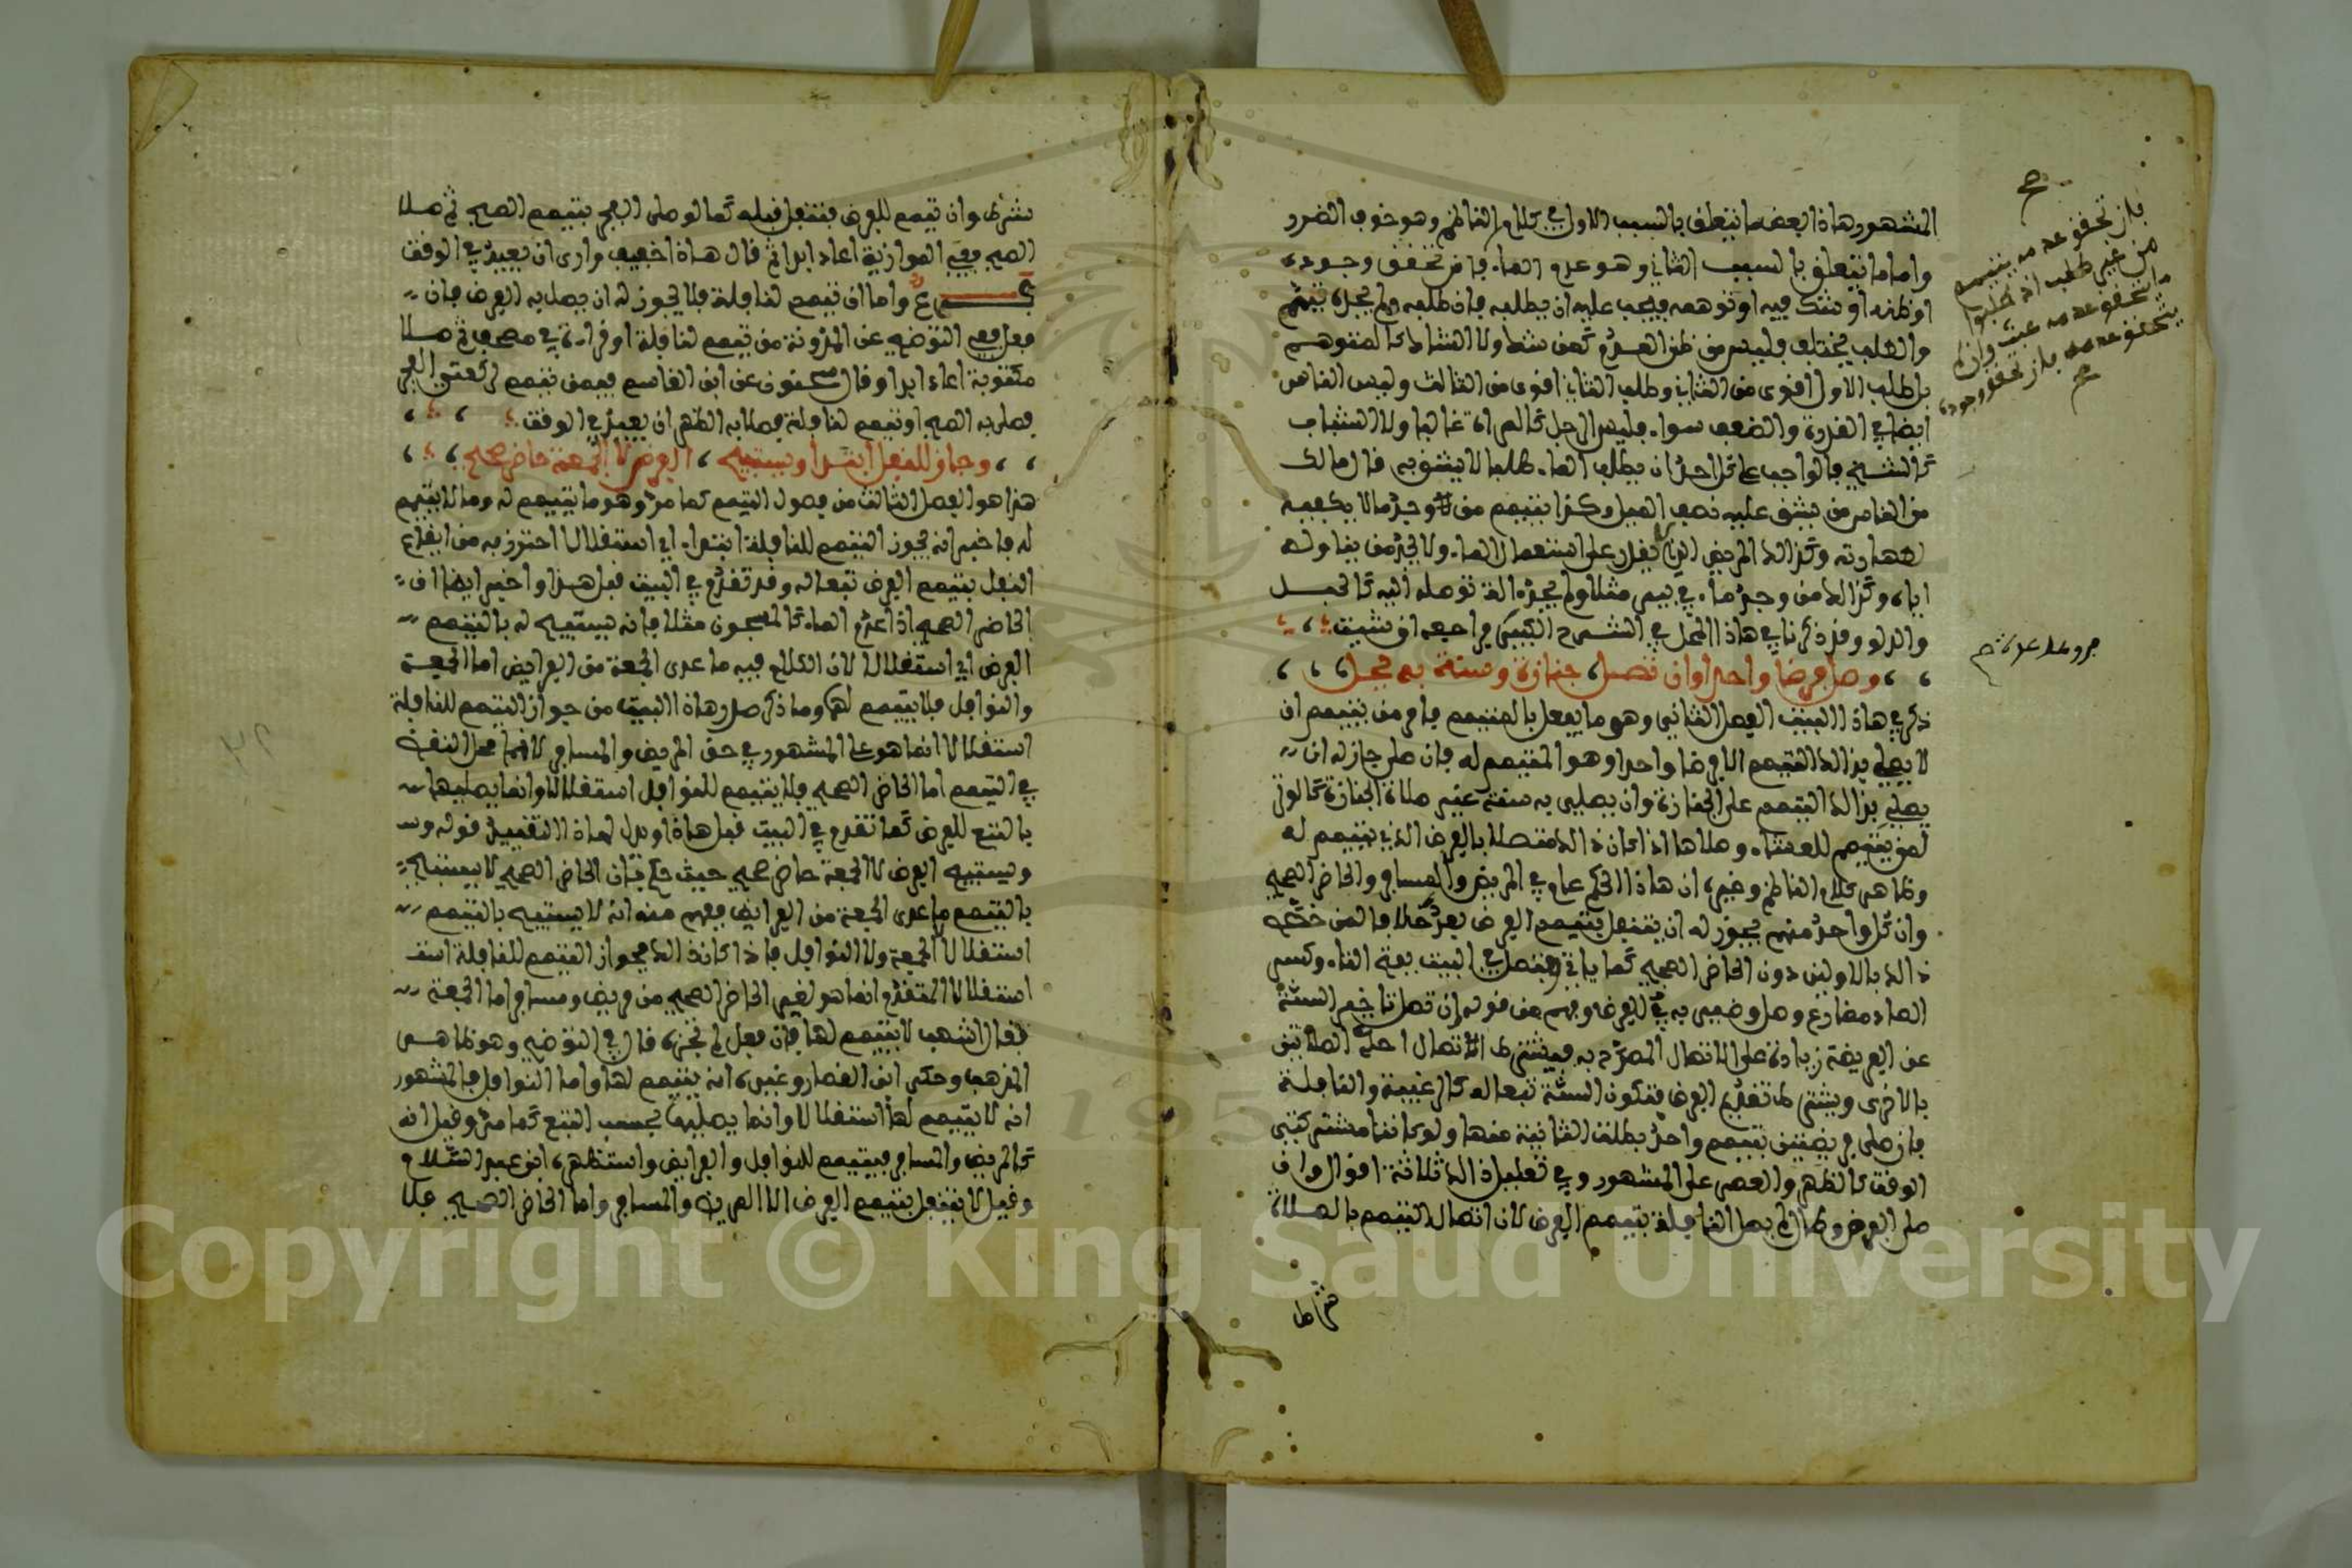 المشهور هاذا بعض ما يتعلق بالسبب الاول في كلام الناظم وهو خوف الضرر
واما ما يتعلق بالسبب الثاني وهو عدم الماء فان تحقق وجوده
او ظنه او شك فيه او توهمه فيجب عليه ان يطلبه فان طلبه ولم يجده تيمم
والطلب يختلف فليس من ظن العدم كمن شك ولا الشاك كالمتوهم
بل طلب الاول اقوى من الثاني وطلب الثاني اقوى من الثالث وليس الناس
ايضا في القدرة والضعف سواء فليس الرجل كالمراة غالبا ولا الشباب
كالشيخ فالواجب على كل احد ان يطلب الماء طلبا لا يشق به قال مالك
من الناس من يشق عليه نصف الميل وكذا يتيمم من وجد ما لا يكفيه
لطهارته وكذالك المريض الذي يقدر على استعمال الماء ولا يجد من يناوله
اياه وكذالك من وجد ماء في بير مثلا ولم يجد الة توصله اليه كالحبل
والدلو وقد ذكرنا في هاذا المحل في الشرح الكبير فراجعه ان شيت
وصل فرضا واحدا وان تصل جنازة وسنة به يحل
ذكر في هاذا البيت الفصل الثاني وهو ما يفعل بالمتيمم فامر من يتيمم ان
لا يصلي بذالك التيمم الا فرضا واحدا وهو المتيمم له فان صلى جاز له ان
يصلي بذالك التيمم على الجنازة وان يصلي به سنة غير صلاة الجنازة كالوتر
لمن يتيمم للعشاء وصلاها اذا كان ذالك متصلا بالفرض الذي يتيمم له
وظاهر كلام الناظم وغيره ان هاذا الحكم عام في المريض والمسافر والحاضر الصحيح
وان كل واحد منهم يجوز له ان يتنفل بتيمم الفرض بعده خلافا لمن خصه
ذالك بالاولين دون الحاضر الصحيح كما ياتي وتصل في البيت بفتح التاء وكسر
الصاد مضارع وصل وضمير به للفرض وفهم من قوله وان تصل تاخير السنة
عن الفريضة زيادة على الاتصال المصرح به فيشترط الاتصال احدى الصلاتين
بالاخرى ويشترط تقديم الفرض فتكون السنة تبعا له كالرغيبة والنافلة
فان صلى فريضتين بتيمم واحد بطلت الثانية منهما ولو كانتا مشتركتي
الوقت كالظهر والعصر على المشهور وفي تعليل ذالك ثلاثة اقوال وان
صلى الفرض وطال لم يصل النافلة بتيمم الفرض لان اتصال التيمم بالصلاة
شرط
فان تحقق عدمه يتيمم
من غير طلب اذ طلب
ما تحقق عدمه عبث وان لم
يتحقق عدمه فان تحقق وجوده
شرط وان تيمم للفرض فتنفل قبله كما لو صلى الفجر بتيمم الصبح ثم صلا
الصبح ففي الموازية اعاد ابدا ثم قال هاذا خفيف وارى ان يعيد في الوقت
واما ان تيمم لنافلة فلا يجوز له ان يصلي به الفرض فان
فعل ففي التوضيح عن المدونة من تيمم لنافلة او قراءة في مصحف ثم صلا
مكتوبة اعاد ابدا وقال سحنون عن ابن القاسم فيمن تيمم لركعتي الفجر
فصلى به الصبح او تيمم لنافلة فصلا به الظهر ان يعيد في الوقت
وجاز للنفل ابتدا ويستبيح الفرض لا الجمعة حاضر صحيح
هذا هو الفصل الثالث من فصول التيمم كما مر وهو ما يتيمم له وما لا يتيمم
له فاخبر انه يجوز التيمم للنافلة ابتداء اي استقلالا احترز به من ايقاع
النفل بتيمم الفرض تبعا له وقد تقدم في البيت قبل هذا واخبر ايضا ان
الحاضر الصحيح اذا عدم الماء كالمسجون مثلا فانه يستبيح له بالتيمم
الفرض اي استقلالا لان الكلام فيه ما عدى الجمعة من الفرايض اما الجمعة
والنوافل فلا يتيمم لهما وما ذكر صدر هاذا البيت من جواز التيمم للنافلة
استقلالا انما هو على المشهور في حق المريض والمسافر لانهما محل النص
في التيمم اما الحاضر الصحيح فلا يتيمم للنوافل استقلالا وانما يصليها
بالتبع للفرض كما تقدم في البيت قبل هاذا ويدل لهاذا التقييد قوله
ويستبيح الفرض لا الجمعة حاضر صحيح حيث حكم بان الحاضر الصحيح لا يستبيح
بالتيمم ما عدى الجمعة من الفرايض ففهم منه انه لا يستبيح بالتيمم
استقلالا الجمعة ولا النوافل فاذا كان ذالك فجواز التيمم للنافلة استقـ
استقلالا المتقدم انما هو لغير الحاضر الصحيح من مريض ومسافر اما الجمعة
فقال اشهب لا يتيمم لها فان فعل لم تجزه قال في التوضيح وهو ظاهر
المذهب وحكى ابن القصار وغيره انه يتيمم لها واما النوافل فالمشهور
انه لا يتيمم لها استقلالا وانما يصليها بحسب التبع كما مر وقيل انه
كالمريض والمسافر فيتيمم للنوافل والفرايض واستظهره ابن عبد السلام
وقيل لا يتنفل بتيمم الفرض الا المريض والمسافر واما الحاضر الصحيح فلا
Copyright © King Saud University
195